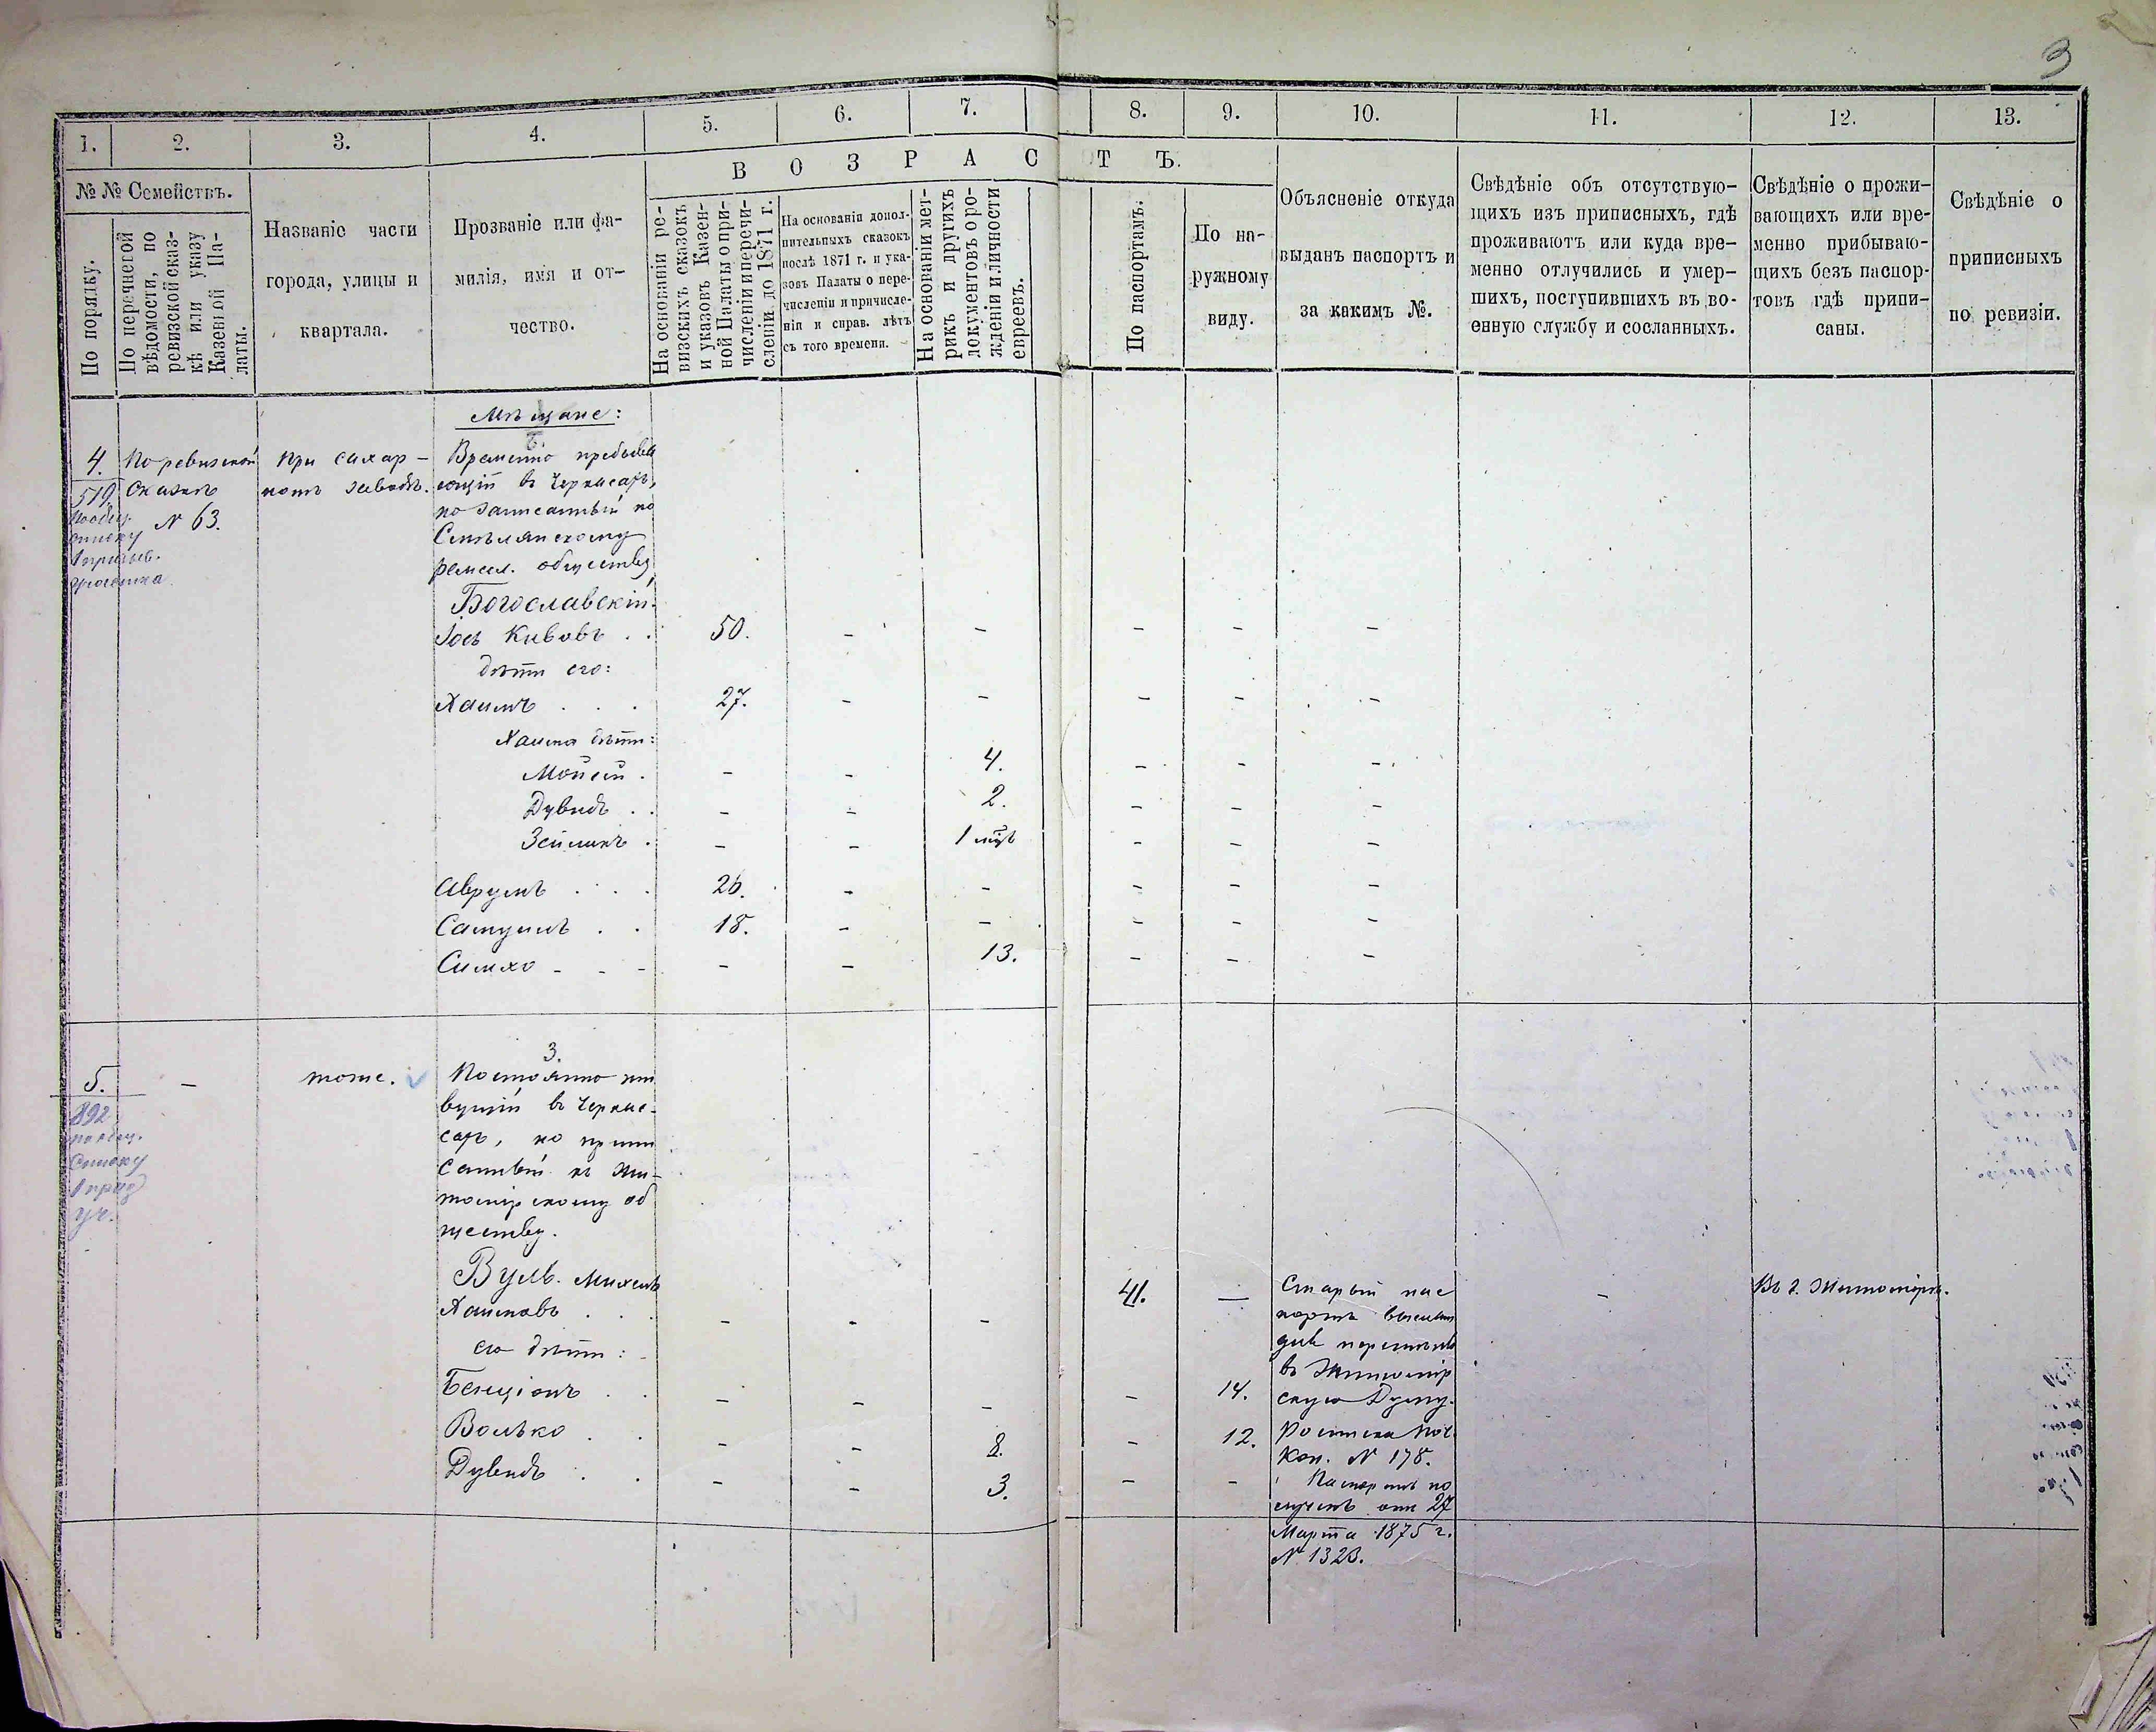 3
1.
2.
3.
4.
5.
6.
7.
8.
9.
10.
11.
12.
13.
№ № Семействъ.
По порядку.
По перечневой
вѣдомости, по
ревизской сказ-
кѣ или указу
Казенной Па-
латы.
Названіе части
города, улицы и
квартала.
Прозваніе или фа-
милія, имя и от-
чество.
ВОЗРАСТЪ.
На основаніи ре-
визскихъ сказокъ
и указовъ Казен-
ной Палаты о при-
численіи и перечи-
сленіи до 1871 г.
На основаніи допол-
нительныхъ сказокъ
послѣ 1871 г. и ука-
зовъ Палаты о пере-
численіи и причисле-
ніи и справ. лѣтъ
съ того времени.
На основаніи мет-
рикъ и другихъ
документовъ о ро-
жденіи и личности
евреевъ.
По паспортамъ.
По на-
ружному
виду.
Объясненіе откуда
выданъ паспортъ и
за какимъ №.
Свѣдѣніе объ отсутствую-
щихъ изъ приписныхъ, гдѣ
проживаютъ или куда вре-
менно отлучились и умер-
шихъ, поступившихъ въ во-
енную службу и сосланныхъ.
Свѣдѣніе о прожи-
вающихъ или вре-
менно прибываю-
щихъ безъ паспор-
товъ гдѣ припи-
саны.
Свѣдѣніе о
приписныхъ
по ревизіи.
Мѣщане:
4.
519.
по общ.
списку
1 призыв.
участка
По ревизской
Сказкѣ
№ 63.
При сахар-
номъ заводѣ.
Временно пребыва
ющій въ Черкасахъ,
но записанный по
Смѣлянскому
ремесл. обществу
Богославскій.
Іось Кивовъ . . 50. - - - - -
дѣти его:
Хаимъ . . . 27. - - - - -
Хаима дѣти:
Мойсей . - - 4. - - -
Дувидъ . . - - 2. - - -
Зейликъ . - - 1 мѣс - - -
Аврумъ . . . 26. - - - - -
Самуилъ . . 18. - - - - -
Симхо - - - - - 13. - - -
3.
5.
892
по общ.
Списку
1 приз
уч.
-
тоже.
Постоянно жи
вущій въ Черкас-
сахъ, но припи
санный къ Жи-
томірскому об
ществу.
Вуль. Михель
Хаимовъ . . . - - - 41. —
его дѣти:
Бенціонъ . . - - - - 14.
Волько . . - - 8. - 12.
Дувидъ . . - - 3. - -
Старый пас
портъ высланъ
для перемѣны
въ Житомір
скую Думу.
Росписка Поч.
Кон. № 178.
Паспортъ по
лученъ отъ 27
Марта 1875 г.
№ 1323.
-
Въ г. Житомірѣ.